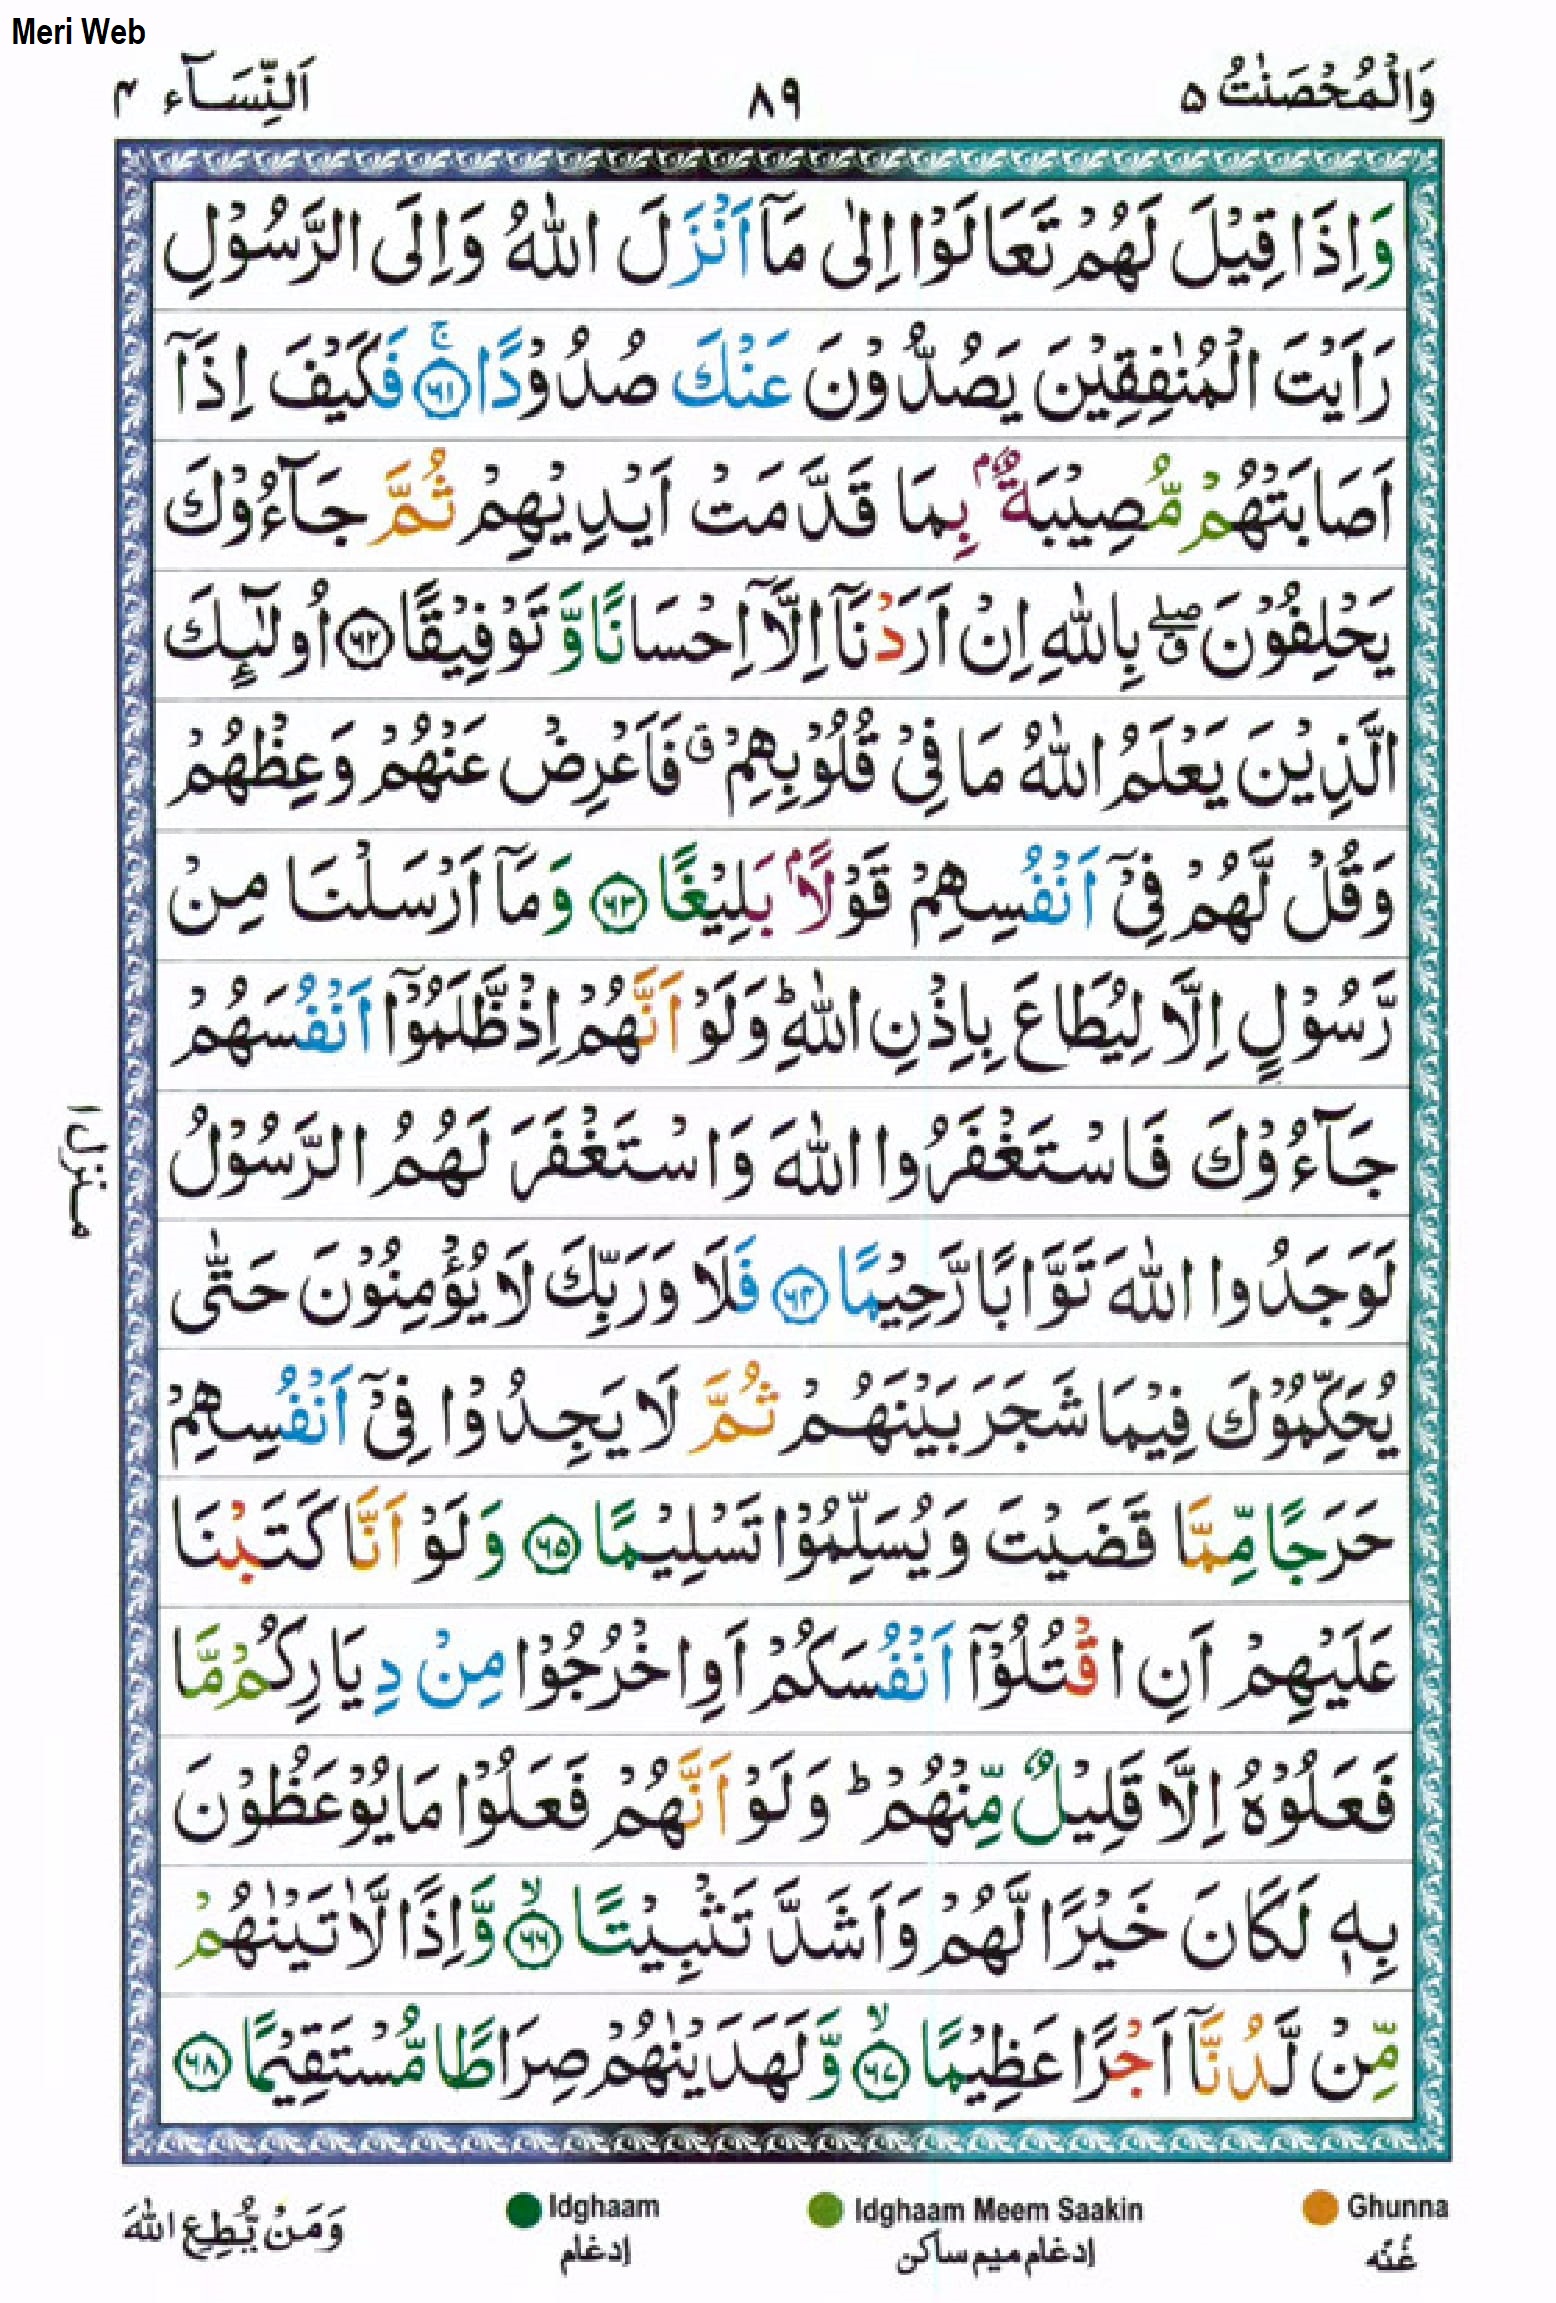 Meri Web
وَالْمُحْصَنٰتُ ۵ ۸۹ اَلنِّسَآء ۴
وَاِذَا قِيْلَ لَهُمْ تَعَالَوْا اِلٰى مَآ اَنْزَلَ اللّٰهُ وَاِلَى الرَّسُوْلِ
رَاَيْتَ الْمُنٰفِقِيْنَ يَصُدُّوْنَ عَنْكَ صُدُوْدًا ۚ‏﴿۶۱﴾ فَكَيْفَ اِذَآ
اَصَابَتْهُمْ مُّصِيْبَةٌۢ بِمَا قَدَّمَتْ اَيْدِيْهِمْ ثُمَّ جَآءُوْكَ
يَحْلِفُوْنَ ۖق بِاللّٰهِ اِنْ اَرَدْنَآ اِلَّآ اِحْسَانًا وَّتَوْفِيْقًا ﴿۶۲﴾ اُولٰٓئِكَ
الَّذِيْنَ يَعْلَمُ اللّٰهُ مَا فِيْ قُلُوْبِهِمْ ق فَاَعْرِضْ عَنْهُمْ وَعِظْهُمْ
وَقُلْ لَّهُمْ فِيْٓ اَنْفُسِهِمْ قَوْلًاۢ بَلِيْغًا ﴿۶۳﴾ وَمَآ اَرْسَلْنَا مِنْ
رَّسُوْلٍ اِلَّا لِيُطَاعَ بِاِذْنِ اللّٰهِ ؕ وَلَوْ اَنَّهُمْ اِذْ ظَّلَمُوْٓا اَنْفُسَهُمْ
جَآءُوْكَ فَاسْتَغْفَرُوا اللّٰهَ وَاسْتَغْفَرَ لَهُمُ الرَّسُوْلُ
لَوَجَدُوا اللّٰهَ تَوَّابًا رَّحِيْمًا ﴿۶۴﴾ فَلَا وَرَبِّكَ لَا يُؤْمِنُوْنَ حَتّٰى
يُحَكِّمُوْكَ فِيْمَا شَجَرَ بَيْنَهُمْ ثُمَّ لَا يَجِدُوْا فِيْٓ اَنْفُسِهِمْ
حَرَجًا مِّمَّا قَضَيْتَ وَيُسَلِّمُوْا تَسْلِيْمًا ﴿۶۵﴾ وَلَوْ اَنَّا كَتَبْنَا
عَلَيْهِمْ اَنِ اقْتُلُوْٓا اَنْفُسَكُمْ اَوِ اخْرُجُوْا مِنْ دِيَارِكُمْ مَّا
فَعَلُوْهُ اِلَّا قَلِيْلٌ مِّنْهُمْ ؕ وَلَوْ اَنَّهُمْ فَعَلُوْا مَا يُوْعَظُوْنَ
بِهٖ لَكَانَ خَيْرًا لَّهُمْ وَاَشَدَّ تَثْبِيْتًا ۙ﴿۶۶﴾ وَّاِذًا لَّاٰتَيْنٰهُمْ
مِّنْ لَّدُنَّآ اَجْرًا عَظِيْمًا ۙ﴿۶۷﴾ وَّلَهَدَيْنٰهُمْ صِرَاطًا مُّسْتَقِيْمًا ﴿۶۸﴾
منزل ۱
Idghaam Idghaam Meem Saakin Ghunna
غُنّه إدغام ميم ساكن إدغام
وَمَنْ يُّطِعِ اللّٰهَ